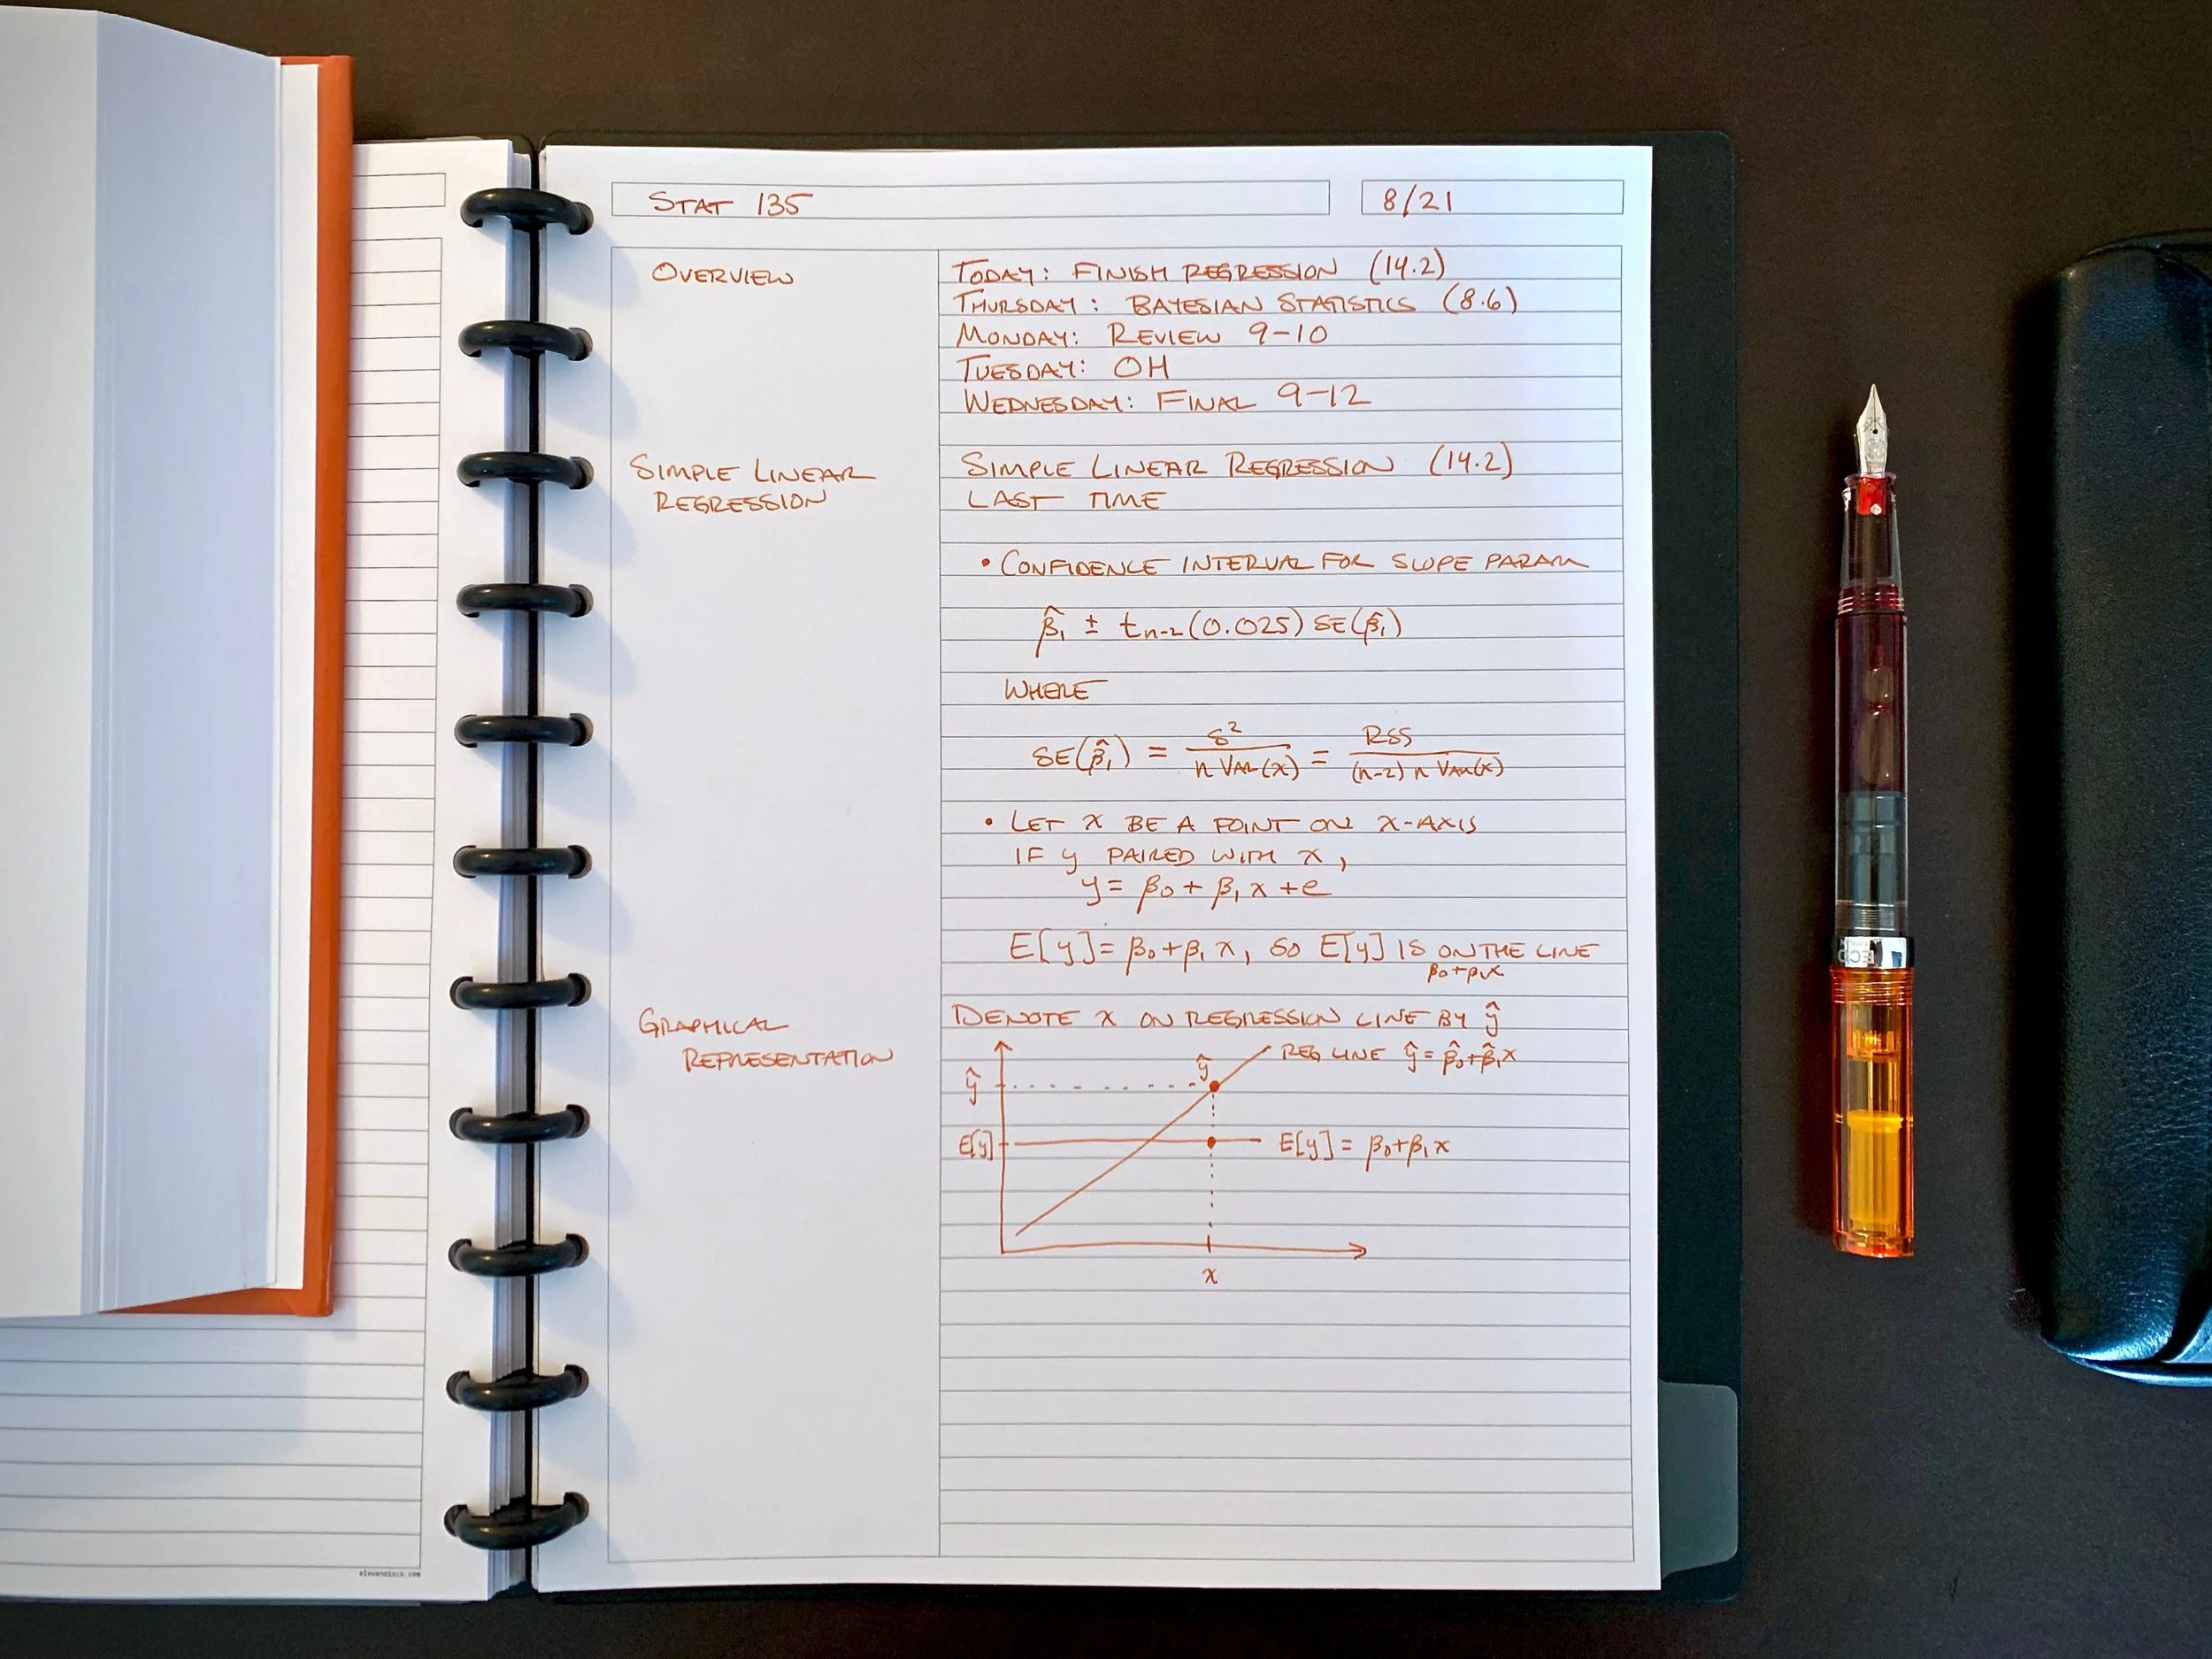 STAT 135
8/21
OVERVIEW
TODAY: FINISH REGRESSION (14.2)
THURSDAY: BAYESIAN STATISTICS (8.6)
MONDAY: REVIEW 9-10
TUESDAY: OH
WEDNESDAY: FINAL 9-12
SIMPLE LINEAR
REGRESSION
SIMPLE LINEAR REGRESSION (14.2)
LAST TIME
• CONFIDENCE INTERVAL FOR SLOPE PARAM
β̂₁ ± tₙ₋₂(0.025) SE(β̂₁)
WHERE
SE(β̂₁) = s² / n VAR(x) = RSS / (n-2) n VAR(x)
• LET x BE A POINT ON X-AXIS
IF y PAIRED WITH x,
y = β₀ + β₁x + e
E[y] = β₀ + β₁x, SO E[y] IS ON THE LINE
β₀+β₁x
GRAPHICAL
REPRESENTATION
DENOTE x ON REGRESSION LINE BY ŷ
REG LINE ŷ = β̂₀+β̂₁x
ŷ
ŷ
E[y]
E[y] = β₀+β₁x
x
elevendiscs.com
ECO